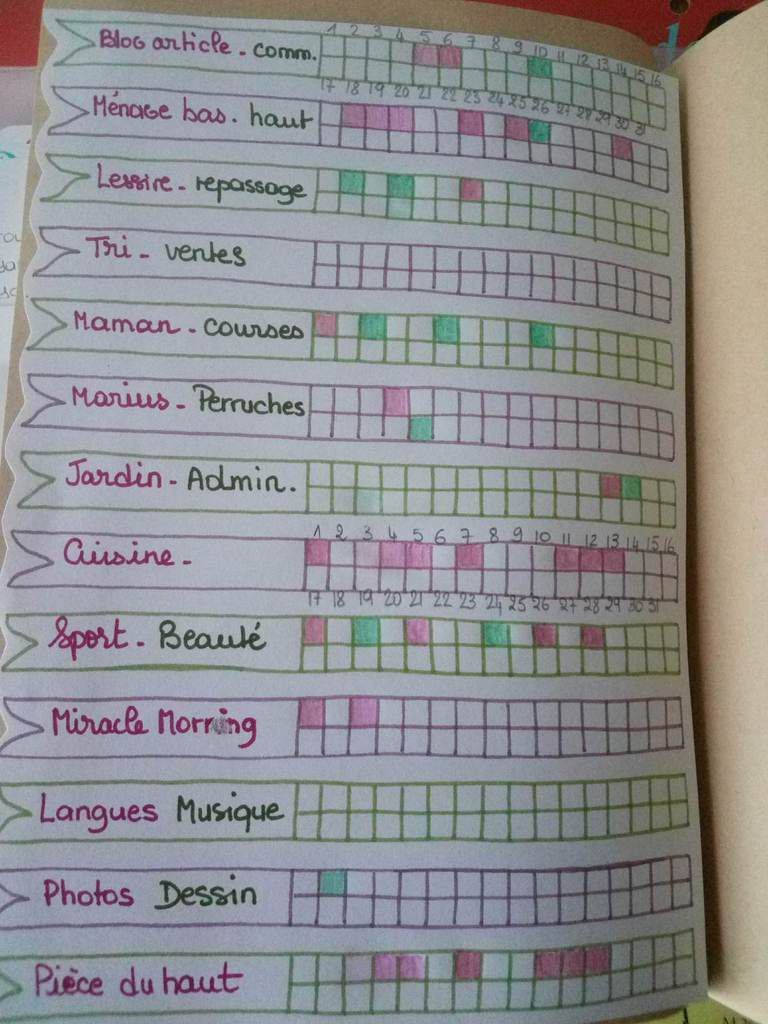 1 2 3 4 5 6 7 8 9 10 11 12 13 14 15 16
Blog article - comm.
17 18 19 20 21 22 23 24 25 26 27 28 29 30 31
Ménage bas. haut
Lessive - repassage
Tri - ventes
Maman - courses
Marius - Perruches
Jardin - Admin.
1 2 3 4 5 6 7 8 9 10 11 12 13 14 15 16
Cuisine -
17 18 19 20 21 22 23 24 25 26 27 28 29 30 31
Sport - Beauté
Miracle Morning
Langues Musique
Photos Dessin
Pièce du haut